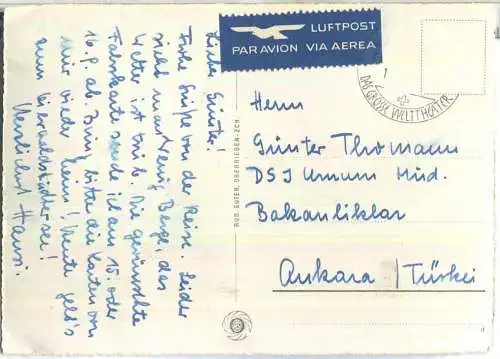 LUFTPOST
PAR AVION VIA AEREA
DAS GROSSE WELTTHEATER
Lieber Günter!
Frohe Grüße von der Reise. Leider
sieht man wenig Berge, das
Wetter ist trüb. Die gewünschte
Fahrkarte sende ich am 15. oder
16. 9. ab. Bring bitte die Karten von
mir wieder heim! Heute geht's
zum Vierwaldstädter see!
Herzlichst Hansi.
RUD. SUTER, OBERRIEDEN-ZCH.
Herrn
Günter Thomann
DSJ Umum Müd.
Bakanliklar
Ankara / Türkei